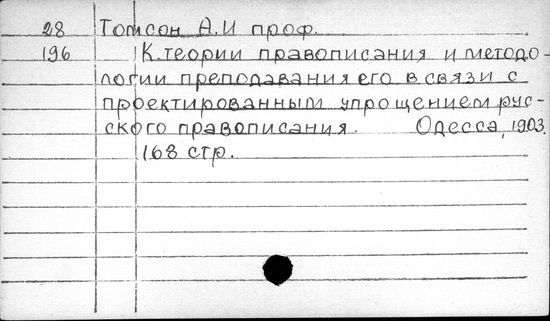 28 Томсон А.И проф.
196 К.теории правописания и методо-
логии преподавания его в связи с
проектированным упрощением рус-
ского правописания. Одесса, 1903.
168 стр.